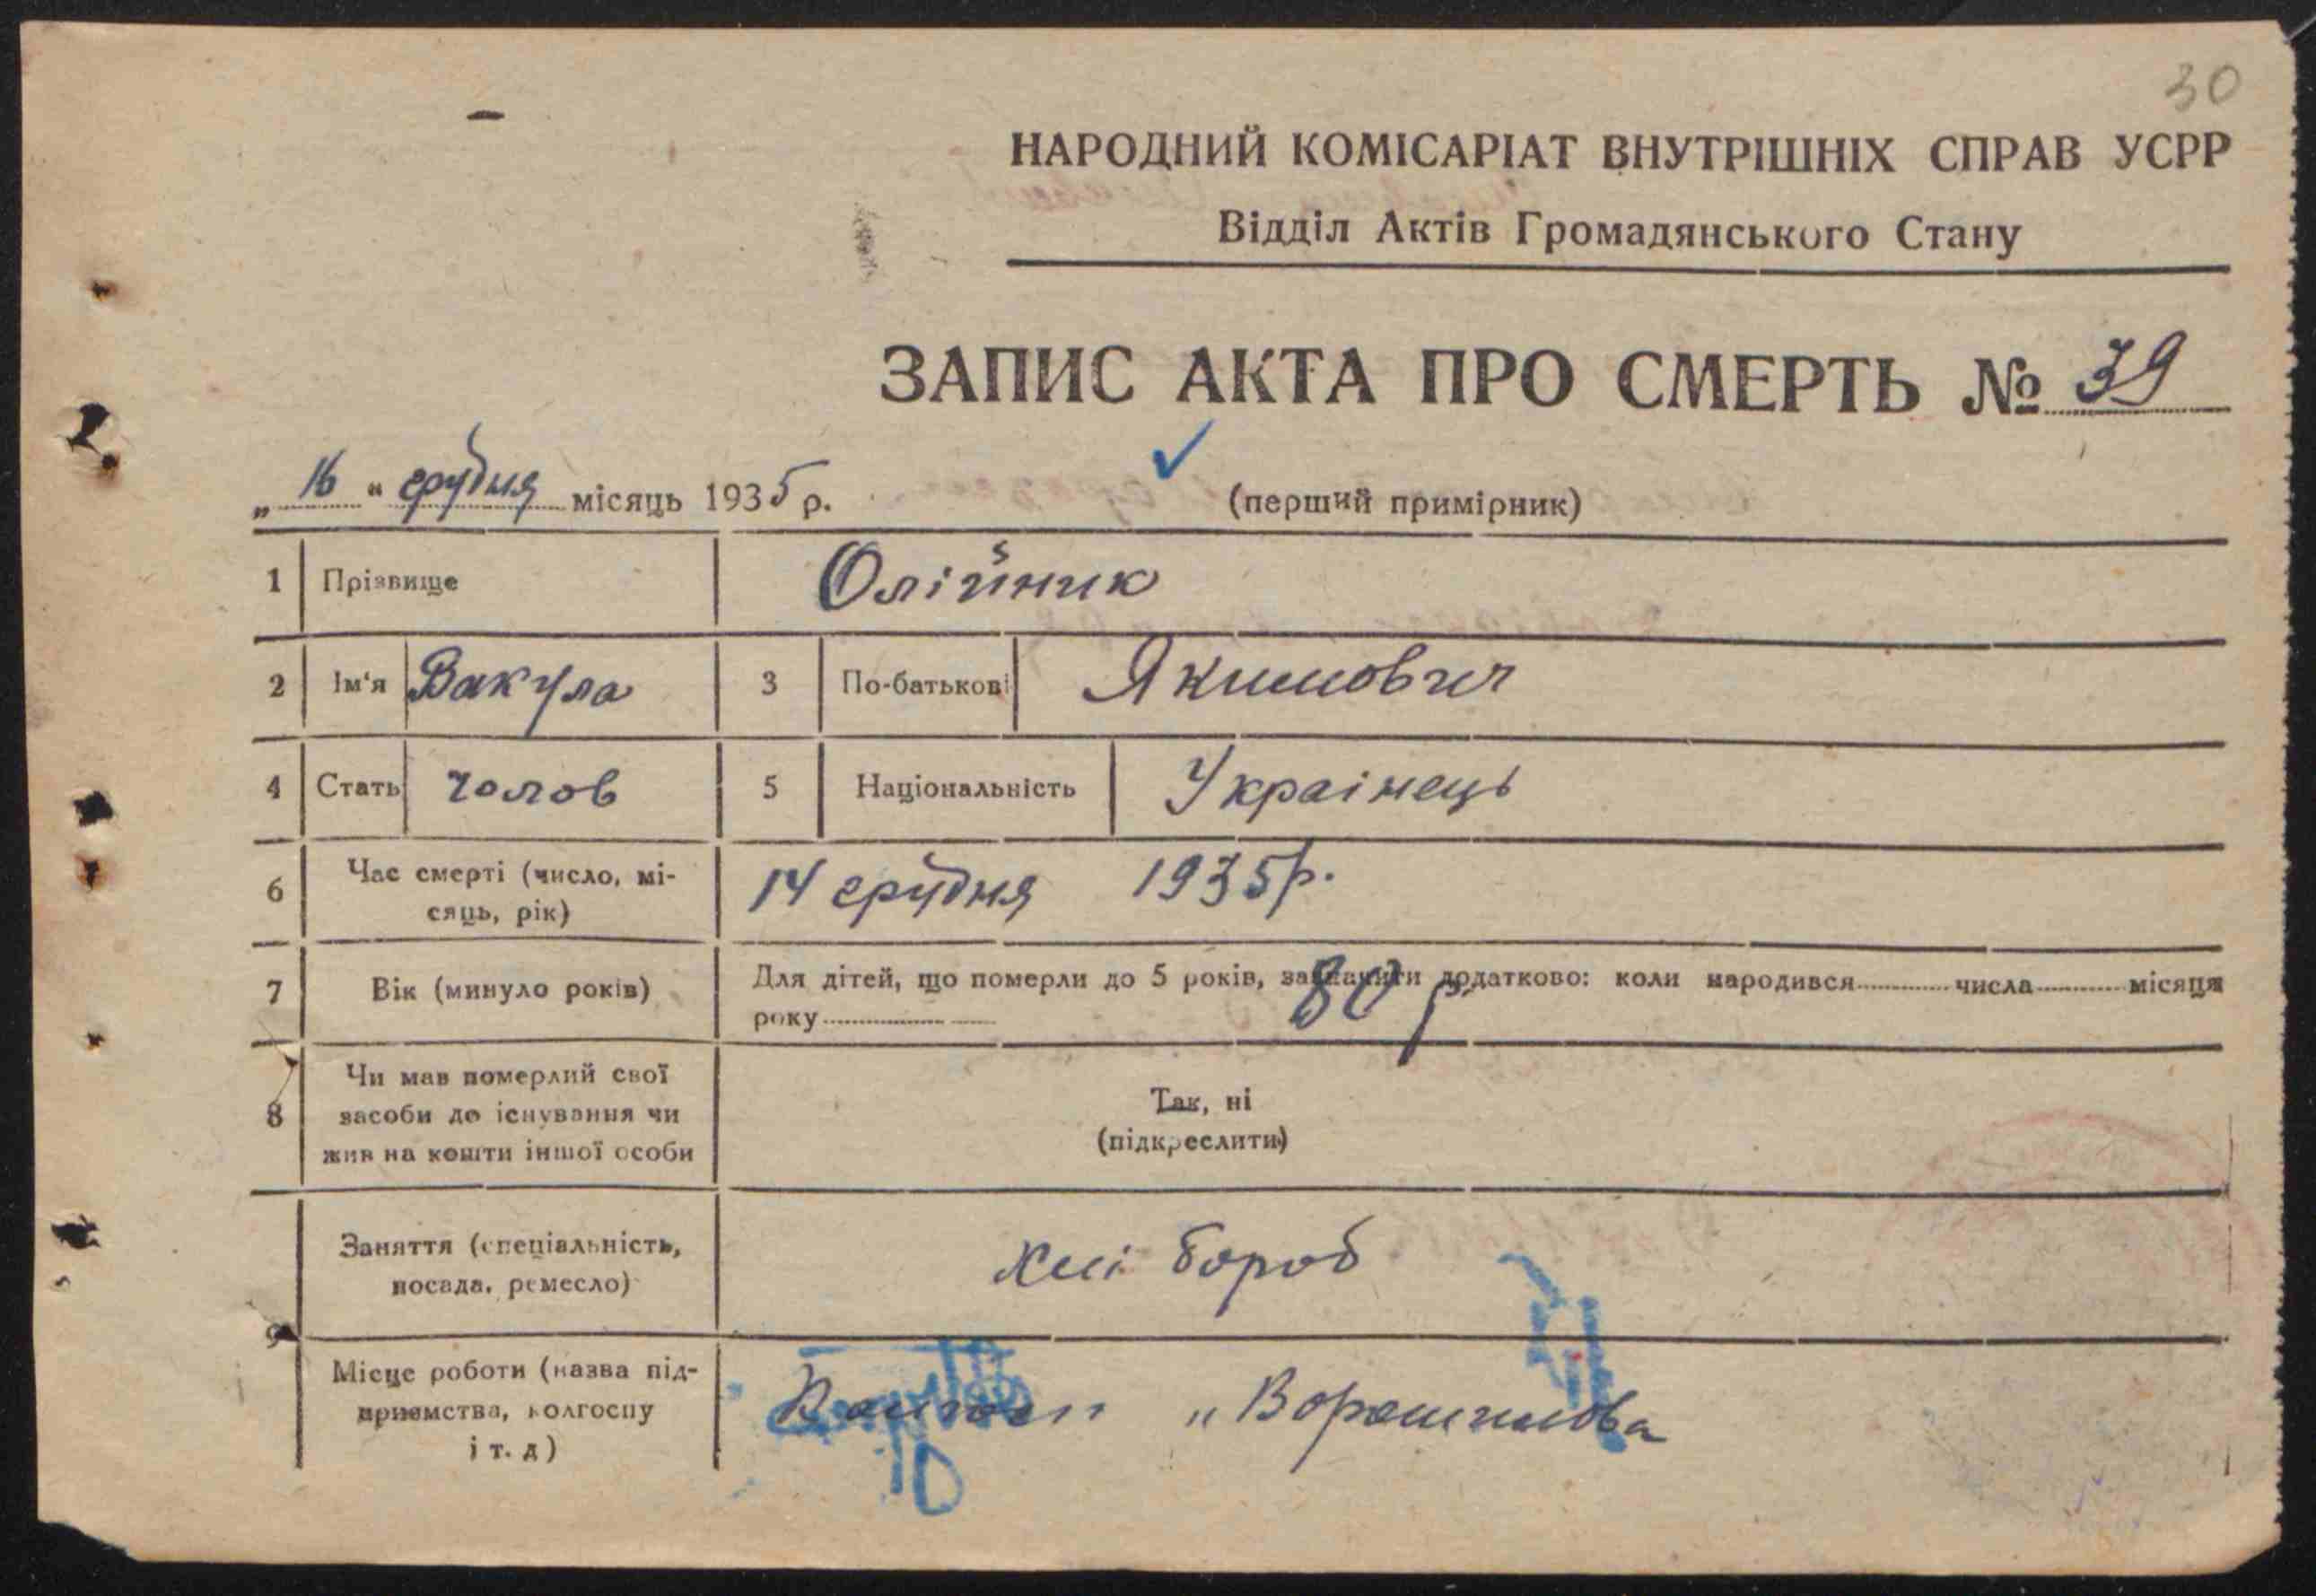 30
НАРОДНИЙ КОМІСАРІАТ ВНУТРІШНІХ СПРАВ УСРР
Відділ Актів Громадянського Стану
ЗАПИС АКТА ПРО СМЕРТЬ № 39
„ 16 “ грудня місяць 1935 р. (перший примірник)
1 Прізвище Олійник
2 Ім'я Вакула 3 По-батькові Якимович
4 Стать чолов 5 Національність Українець
6 Час смерті (число, мі-
сяць, рік) 14 грудня 1935 р.
7 Вік (минуло років) Для дітей, що померли до 5 років, зазначити додатково: коли народився числа місяця
року 80 р
8 Чи мав померлий свої
засоби до існування чи
жив на кошти іншої особи
Так, ні
(підкреслити)
9 Заняття (спеціальність,
посада, ремесло) хлібороб
Місце роботи (назва під-
приємства, колгоспу
і т. д)
Колгосп „Ворошилова